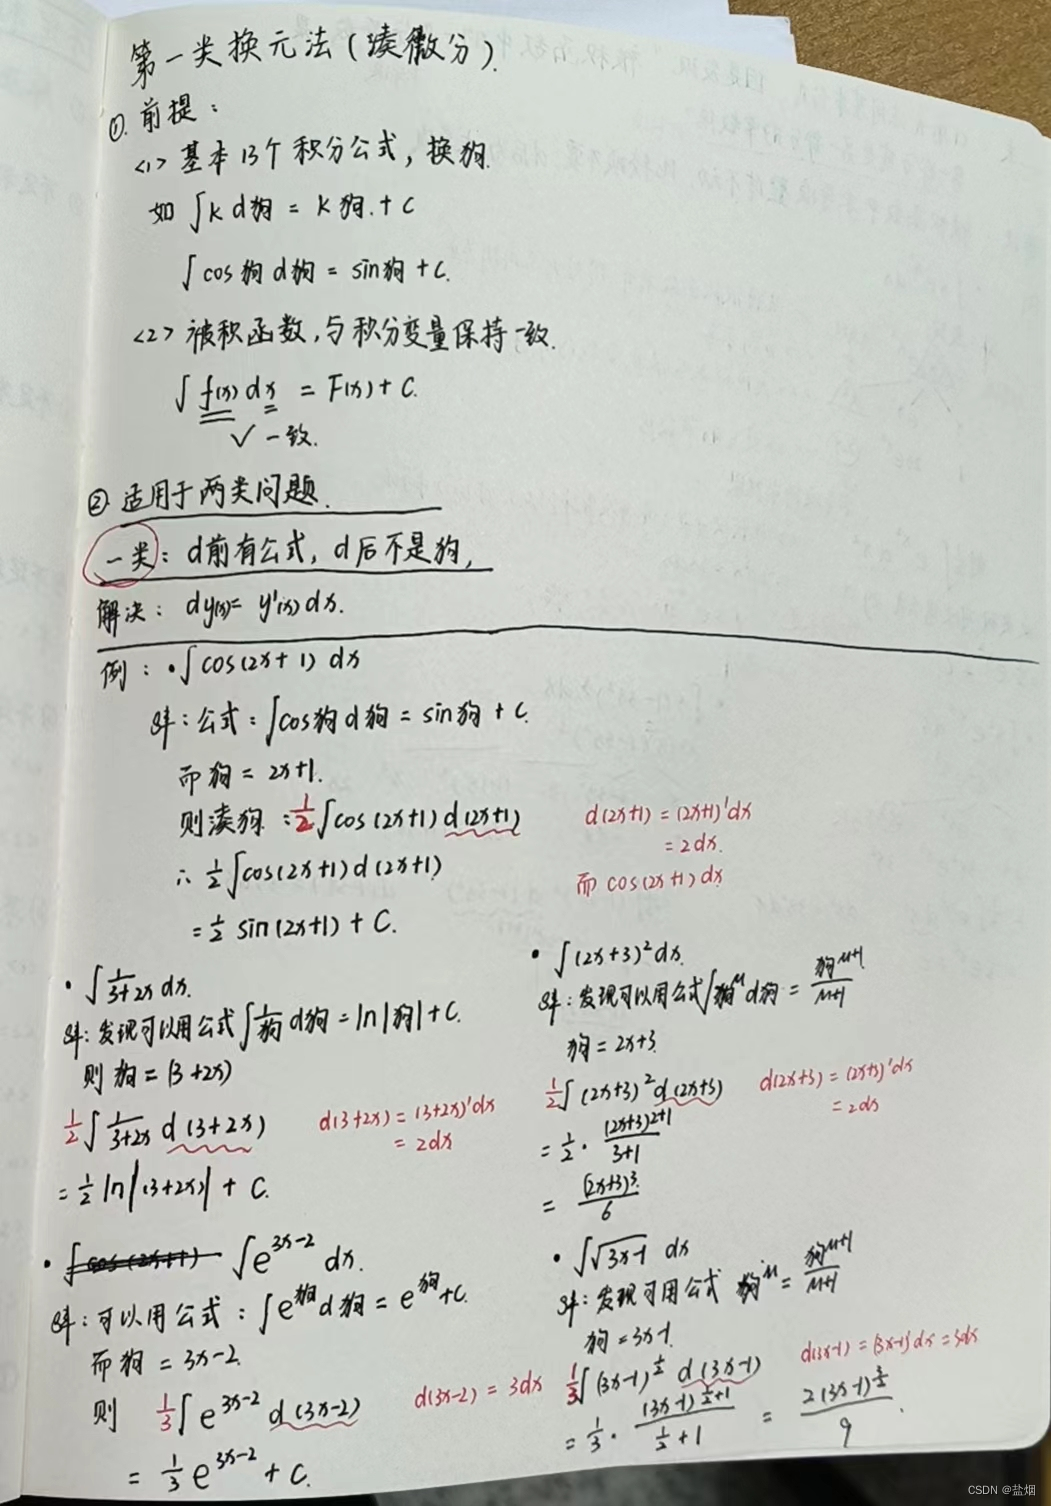 第一类换元法(凑微分).
①. 前提:
<1> 基本13个积分公式, 换狗.
如 ∫k d狗 = k狗.+C
∫cos狗 d狗 = sin狗+C.
<2> 被积函数,与积分变量保持一致.
∫f(x)dx = F(x)+C.
√一致.
② 适用于两类问题.
一类: d前有公式, d后不是狗,
解决: dy(x)= y'(x)dx.
例: •∫cos(2x+1) dx
解:公式:∫cos狗d狗=sin狗+C.
而狗=2x+1.
则凑狗:½∫cos(2x+1)d(2x+1)
d(2x+1)=(2x+1)'dx
=2dx.
而 cos(2x+1)dx
∴ ½∫cos(2x+1)d(2x+1)
=½ sin(2x+1)+C.
• ∫1/(3+2x) dx.
解:发现可以用公式∫1/狗 d狗=ln|狗|+C.
则狗=(3+2x)
½∫1/(3+2x) d(3+2x)
d(3+2x)=(3+2x)'dx
=2dx
=½ ln|(3+2x)|+C.
• ∫(2x+3)²dx.
解:发现可以用公式∫狗^μ d狗=狗^(μ+1)/(μ+1)
狗=2x+3.
½∫(2x+3)²d(2x+3)
d(2x+3)=(2x+3)'dx
=2dx
=½·(2x+3)^(2+1)/(3+1)
=(2x+3)³/6
• ∫cos(2x+1) ∫e^(3x-2) dx.
解:可以用公式:∫e^狗 d狗=e^狗+C.
而狗=3x-2.
则 ⅓∫e^(3x-2) d(3x-2)
d(3x-2)=3dx
=⅓e^(3x-2)+C.
• ∫√(3x-1) dx
解:发现可用公式 狗^μ=狗^(μ+1)/(μ+1)
狗=3x-1.
⅓∫(3x-1)^½ d(3x-1)
d(3x-1)=(3x-1)'dx=3dx
=⅓·(3x-1)^(½+1)/(½+1) = 2(3x-1)^(3/2)/9.
CSDN @盐烟